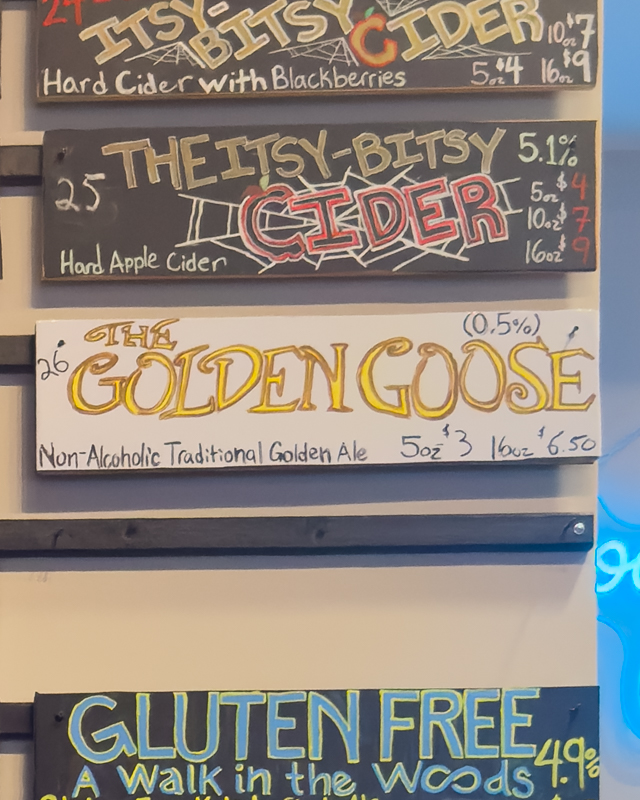 24
ITSY-
BITSY CIDER
10oz $7
Hard Cider with Blackberries 5oz $4 16oz $9
25 THE ITSY-BITSY 5.1%
CIDER
5oz $4
10oz $7
16oz $9
Hard Apple Cider
26 THE (0.5%)
GOLDEN GOOSE
Non-Alcoholic Traditional Golden Ale 5oz $3 16oz $6.50
GLUTEN FREE
A Walk in the Woods 4.9%